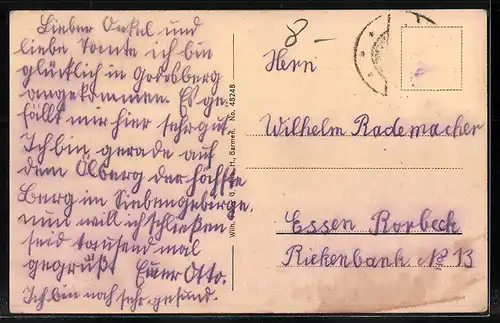 Lieber Onkel und
liebe Tante ich bin
glücklich in Godesberg
angekommen. Es ge-
fällt mir hier sehr gut.
Ich bin gerade auf
dem Ölberg der höchste
Berg im Siebengebirge.
nun will ich schließen
seid tausend mal
gegrüßt Euer Otto.
Ich bin noch sehr gesund.
8 -
Herrn
Wilhelm Rademacher
Essen Borbeck
Riekenbank No 13
Barmen. No. 48248